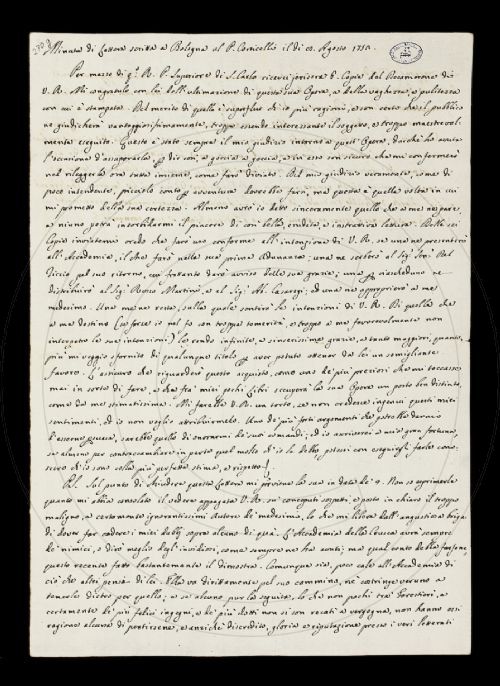 Minuta di lettera scritta a Bologna al P. Corticelli il dì 28. Agosto 1751.
Per mezzo di q.º R. P. Superiore di S. Carlo ricevei jersera 6. Copie del Decamerone di
V. R. Mi congratulo con lei dell'ultimazione di questa sua Opera, e della vaghezza, e pulitezza
con cui è stampata. Del merito di quella è superfluo ch'io più ragioni, e son certo che il pubblico
ne giudicherà vantaggiosissimamente, troppo essendo interessante il soggetto, e troppo maestrevol-
mente eseguito. Questo è stato sempre il mio giudizio intorno a quest'Opera, dacchè ho avuta
l'occasione d'assaporarla, p dir così, a goccia a goccia, e in esso son sicuro che mi confermerò
nel rileggerla ora tutta insieme, come farò di volo. Del mio giudizio veramente, come di
poco intendente, picciolo conto p avventura dovrebbe farsi, ma questa è quella volta in cui
mi prometto della sua certezza. Almeno avrò io detto sinceramente quello che a me ne pare,
a niuno potrà intorbidarmi il piacere di così bella, erudita, e instruttiva lettura. Delle sei
Copie inviatemi credo che farò uso conforme all'intenzione di V. R. se una ne presenterò
all'Accademia, il che farò nella sua prima Adunanza, una ne serberò al Sig.r Gio. Del
Turco pel suo ritorno, cui frattanto darò avviso delle sue grazie, una p ciascheduno ne
distribuirò al Sig.r Rosso Martini, e al Sig.r Ab. Casaregi, ed una ne approprierò a me
medesimo. Una me ne resta, sulla quale sentirò le intenzioni di V. R. Di quella che
a me destino (se forse in ciò fo non troppa temerità, e troppo a me favorevolmente non
interpreto le sue intenzioni) le rendo infinite, e sincerissime grazie, e tanto maggiori, quanto
più mi veggio sfornito di qualunque titolo p aver potuto ottener da lei un somigliante
favore. L'assicuro che riguarderò questo acquisto, come uno de' più preziosi che mi toccasse
mai in sorte di fare, e che fra' miei pochi libri occuperà la sua Opera un posto ben distinto,
come da me stimatissima. Mi farebbe V. R. un torto, se non credesse ingenui questi miei
sentimenti, ed io non voglio attribuirmelo. Uno de' più forti argomenti che potrebbe darmi
d'esserne persuasa, sarebbe quello di onorarmi de' suoi comandi; ed io ascriverei a mia gran fortuna,
se alcuno per contraccambiare in parte quel molto ch'io le debbo potessi con eseguirgli farle cono-
scere ch'io sono colla più perfetta stima, e rispetto.
P.S. Sul punto di chiudere questa lettera mi perviene la sua in data de'
quanto mi abbia consolato il vedere appagata V. R. su' conceputi sospetti, e posto in chiaro il troppo
maligno, e certamente ignorantissimo Autore de' medesimi, lo che mi libera dall'angustia e briga
di dover far cadere i miei dubbj sopra alcuno di qua. L'Accademia della Crusca avrà sempre
de' nimici, o dirò meglio degl'invidiosi, come sempre ne ha avuti; ma qual conto debba farsene,
questo recente fatto bastantemente il dimostra. Comunque sia, poco cale all'Accademia di
ciò che altri pensi di lei. Ella va dirittamente pel suo cammino, nè costringe veruno a
tenerle dietro per quello, e se alcuno pur la seguita, lo che non pochi tra' Forestieri, e
certamente de' più felici ingegni, e de' più dotti non si son recati a vergogna, non hanno essi
ragione alcuna di pentirsene, e anzichè discredito, gloria e riputazione presso i veri letterati